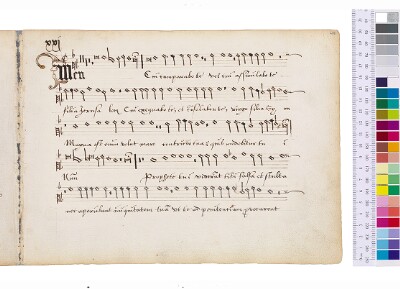 xvi
Mem Cui comparabo te vel cui assimilabo te
filia Cui exequabo te, et consolabor te, virgo filia
Magna est enim velut mare contritio tua quis medebitur tu i
Nun Prophete tui viderunt tibi falsa et stulta
nec aperiebant iniquitatem tuā ut te ad penitentiam